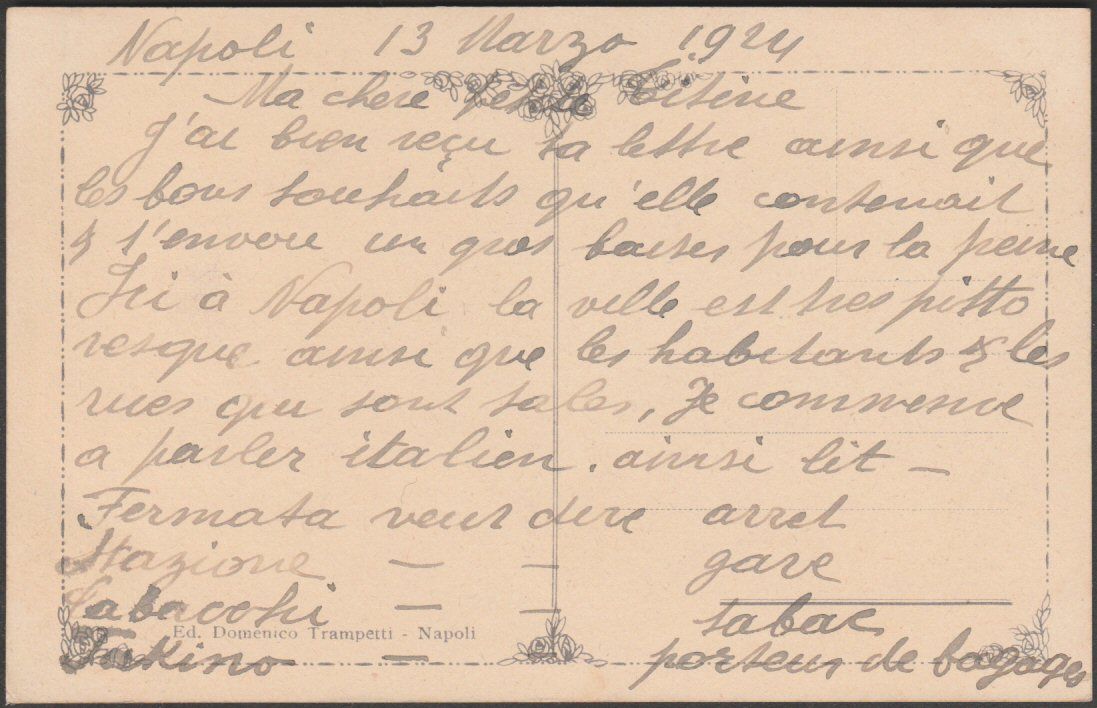 Napoli 13 Marzo 1924
Ma chere petite Titine
J'ai bien reçu ta lettre ainsi que
les bons souhaits qu'elle contenait
& t'envoie un gros baiser pour la peine
Ici à Napoli la ville est tres pitto
resque ainsi que les habitants & les
rues qui sont sales, Je commence
a parler italien. ainsi
Fermata veut dire arret
Stazione — — gare
Tabacchi — — tabac
Ed. Domenico Trampetti - Napoli
Fakino — — porteur de bagages